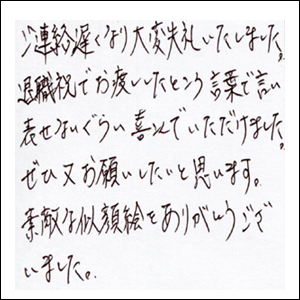 ご連絡遅くなり大変失礼いたしました。
退職祝でお渡ししたところ言葉で言い
表せないぐらい喜んでいただけました。
ぜひ又お願いしたいと思います。
素敵な似顔絵をありがとうござ
いました。